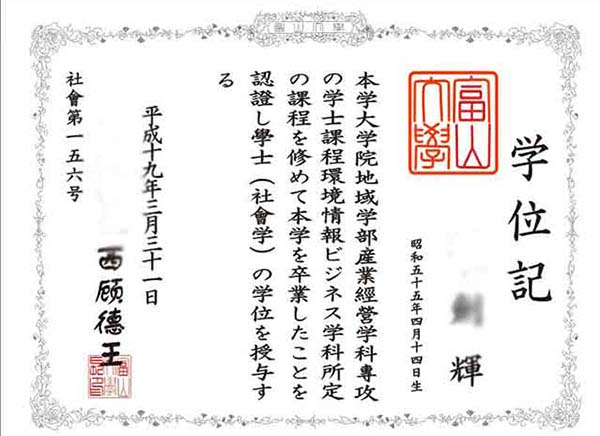 学位記
輝
昭和五十五年四月十四日生
富山
大學
本学大学院地域学部産業經營学科専攻
の学士課程環境情報ビジネス学科所定
の課程を修めて本学を卒業したことを
認證し學士(社會学)の学位を授与す
る
平成十九年三月三十一日
西顾德王
社會第一五六号